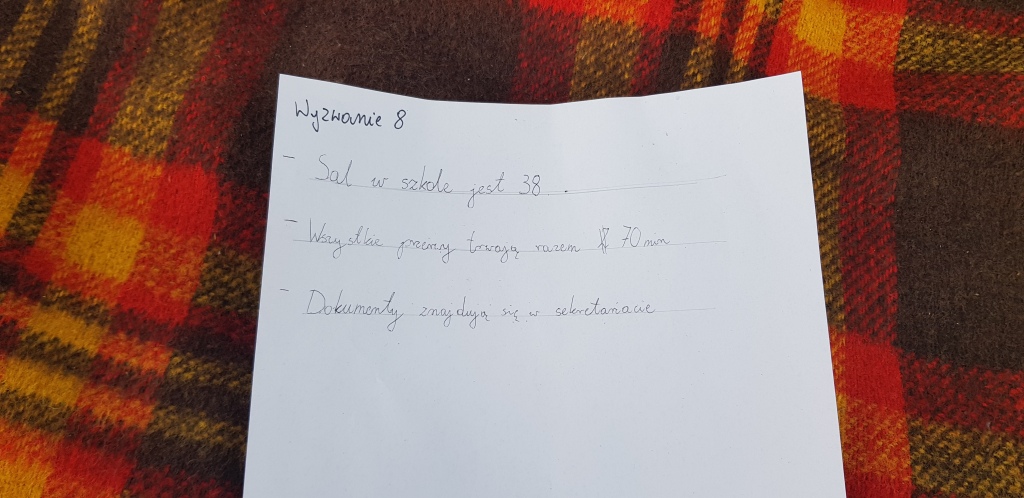 Wyzwanie 8
- Sal w szkole jest 38.
- Wszystkie przerwy trwają razem 70 min
- Dokumenty znajdują się w sekretariacie